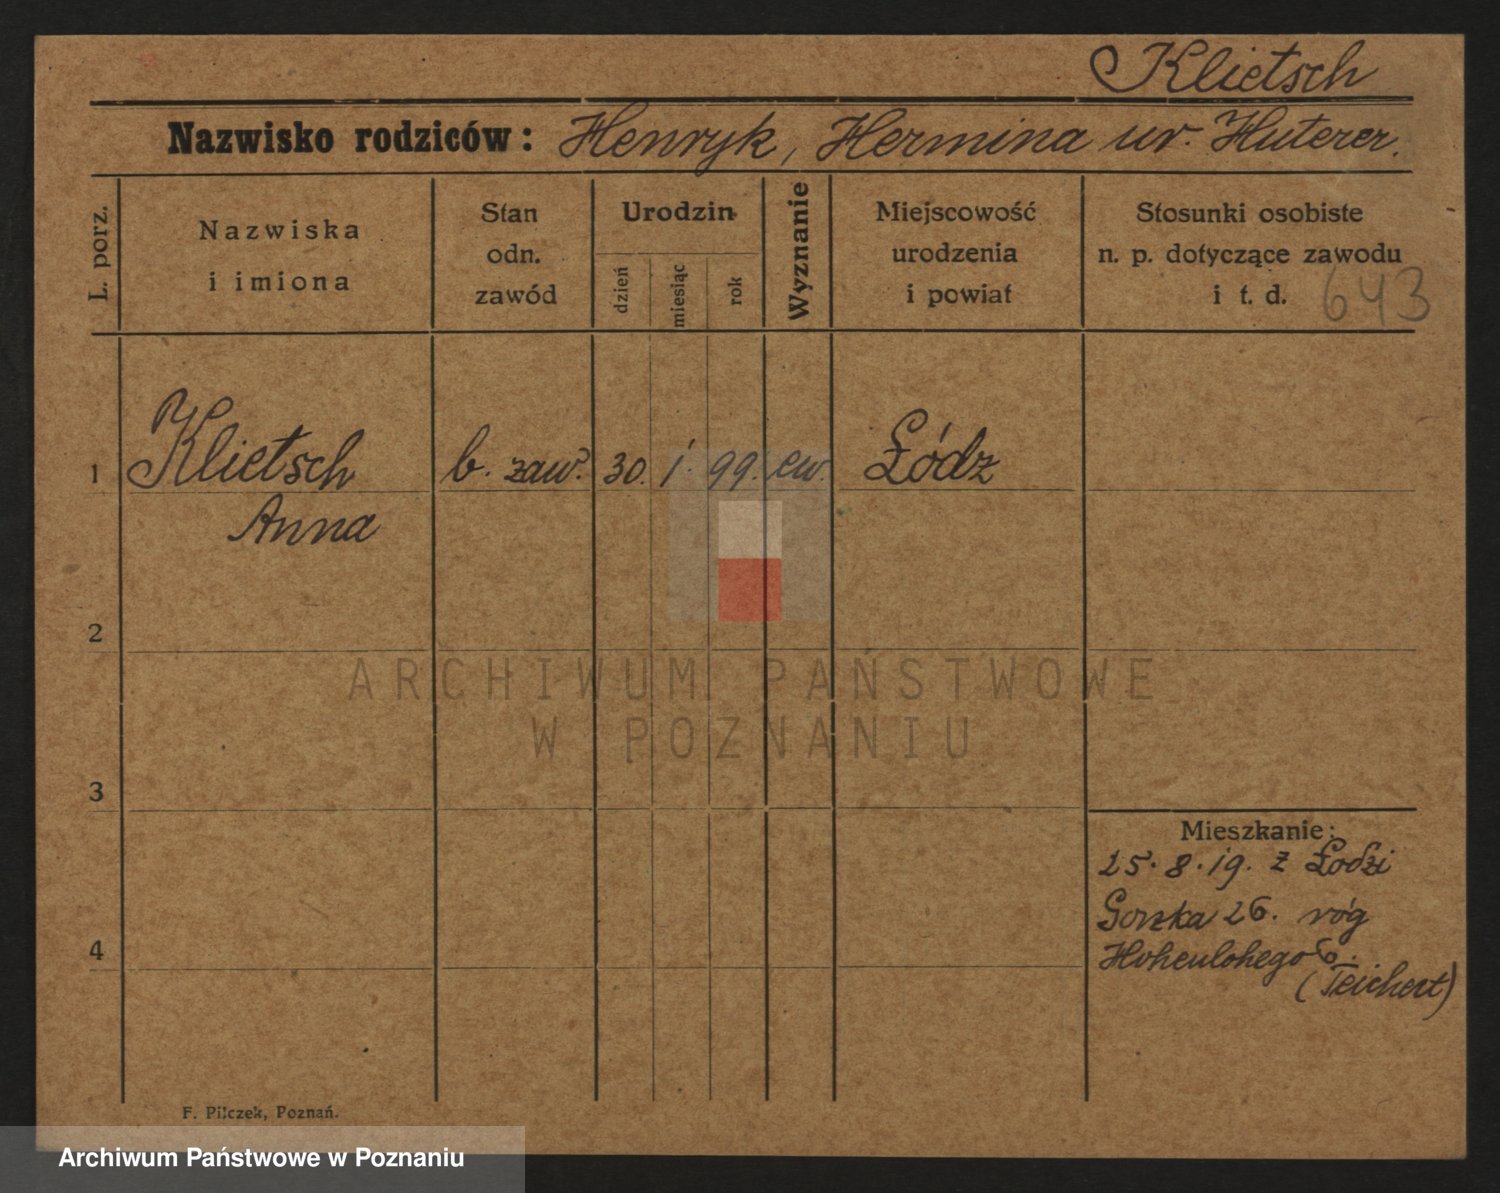 Klietsch
Nazwisko rodziców: Henryk, Hermina ur. Huterer.
L. porz.
Nazwiska
i imiona
Stan
odn.
zawód
Urodzin
dzień
miesiąc
rok
Wyznanie
Miejscowość
urodzenia
i powiat
Stosunki osobiste
n. p. dotyczące zawodu
i t. d.
643
1 Klietsch b. zaw. 30. 1. 99. ew. Łódz
Anna
2
ARCHIWUM PAŃSTWOWE
W POZNANIU
3
Mieszkanie:
25.8.19. z Łodzi
Gorzka 26. róg
Hohenlohego 6.
(Teichert)
4
F. Pilczek, Poznań.
Archiwum Państwowe w Poznaniu